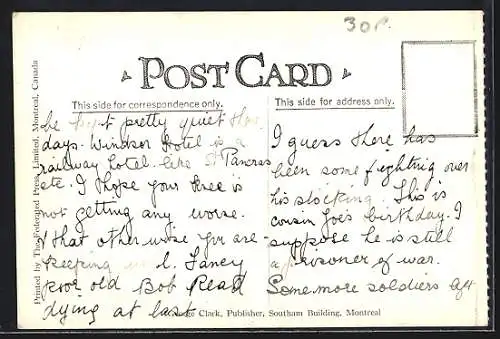 30P.
POST CARD
This side for correspondence only.
This side for address only.
be kept pretty quiet
days. Windsor Hotel is a
railway hotel like St Pancras
etc. I hope your knee is
not getting any worse.
& that otherwise you are
keeping well. Fancy
poor old Bob Read
dying at last
I guess there has
been some fighting over
his stocking. This is
cousin Joe's birthday. I
suppose he is still
a prisoner of war.
Some more soldiers
Printed by The Federated Press, Limited, Montreal, Canada
Clark, Publisher, Southam Building, Montreal